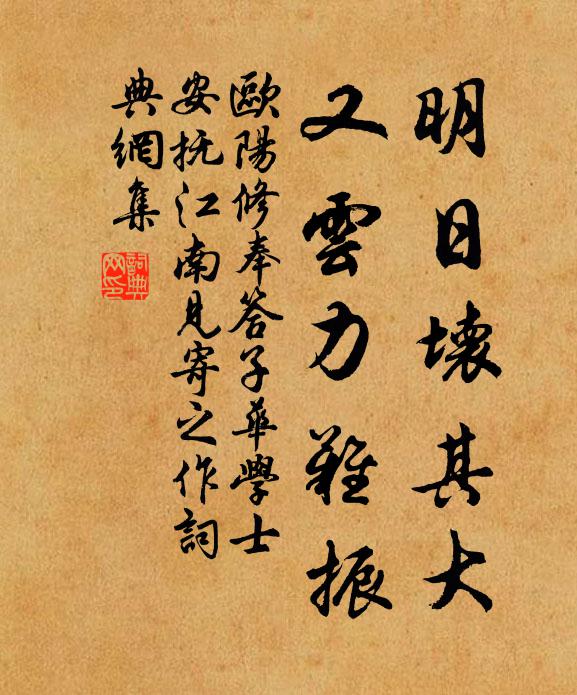 明日壞其大
又雲力難振
歐陽修奉答子華學士
安撫江南見寄之作詞
典網集
詞典網印